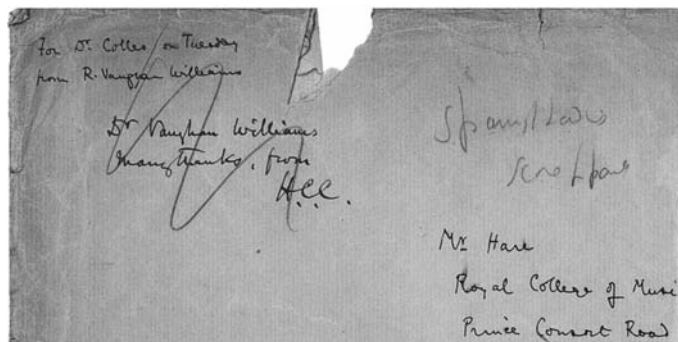 For Dr. Colles on Tuesday
from R. Vaughan Williams
Dr Vaughan Williams
many thanks, from
H.C.C.
Mr. Hare
Royal College of Musi
Prince Consort Road